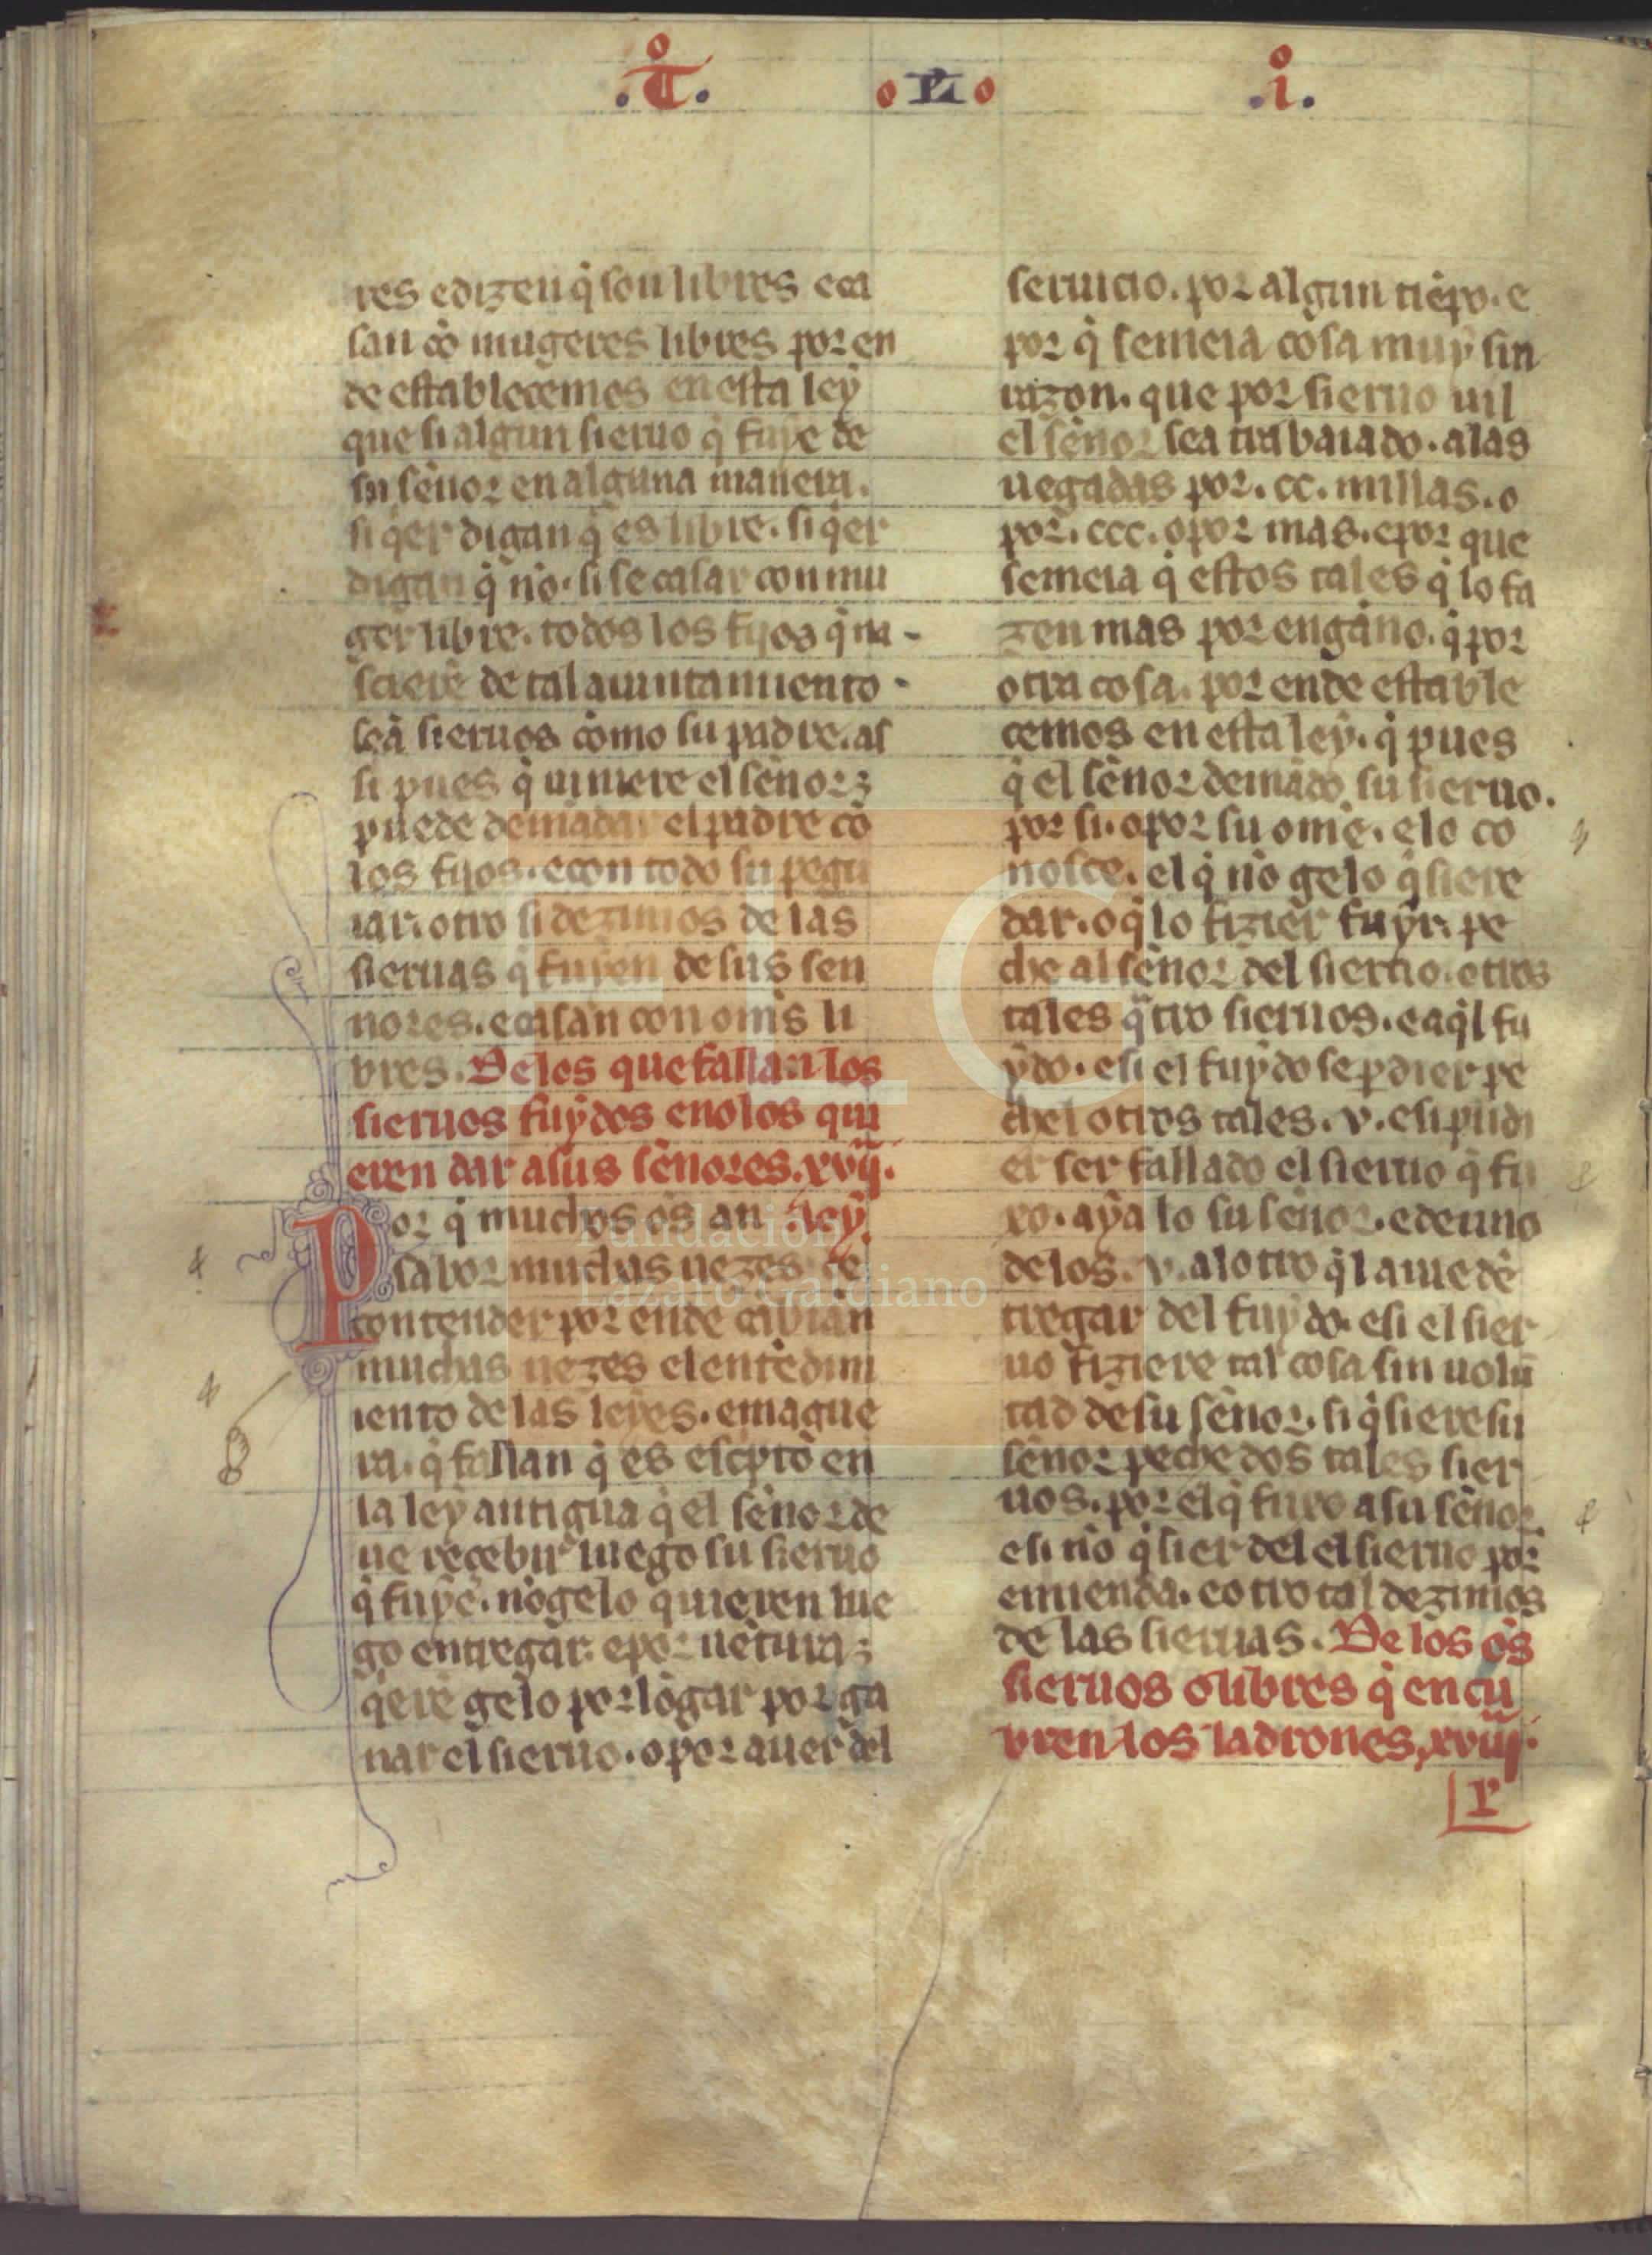 .t̊. o IX o .i̊.
res edizen q̇ son libres eca
san cõ mugeres libres por en
de establecemos en esta ley
que si algun sieruo q̇ fuye de
su sẽnor en alguna manera.
si q̇er digan q̇ es libre. si q̇er
digan q̇ nõ. si se casar con mu
ger libre. todos los fijos q̇ na-
scierẽ de tal aiuntamiento-
seã sieruos cõmo su padre. as
si pues q̇ uiniere el sẽnor
puede demãdar el padre cõ
los fijos. econ todo su pegu
iar. otro si dezimos de las
sieruas q̇ fuyen de sus sen
nores. ecasan con om̃s li
bres. De los que fallan los
sieruos fuydos enolos qui
eren dar asus sẽnores. xvij.
Por q̇ muchos õs an ley.
sabor muchas uezes de
contender por ende canbian
muchas uezes el entẽdimi
iento de las leyes. emague
ra. q̇ fallan q̇ es esc̃pto en
la ley antigua q̇ el sẽnor de
ue recebir luego su sieruo
q̇ fuye. nõ gelo quieren lue
go entregar. epor uẽtura
q̇erẽ gelo por logar por ga
nar el sieruo. o por auer del
seruicio. por algun tiẽpo. e
por q̇ semeia cosa muy sin
razon. que por sieruo uil
el sẽnor sea trabaiado. alas
uegadas por. cc. millas. o
por. ccc. opor mas. epor que
semeia q̇ estos tales q̇ lo fa
zen mas por engãno. q̇ por
otra cosa. por ende estable
cemos en esta ley. q̇ pues
q̇ el sẽnor demãdo su sieruo.
por si. opor su omẽ. elo co
nosce. el q̇ nõ gelo q̇siere
dar. o q̇ lo fizier fuyr. pe
che al sẽnor del sieruo. otros
tales q̃tro sieruos. eaq̇l fu
ydo. esi el fuydo se ꝑdier pe
chel otros tales. v. esi pudi
er ser fallado el sieruo q̇ fu
xo. aya lo su sẽnor. edeuno
de los. v. alotro q̇l auie dẽ
tregar del fuydo. esi el sier
uo fiziere tal cosa sin uolũ
tad de su sẽnor. si q̇siere su
sẽnor peche dos tales sier
uos. por el q̇ fuxo a su sẽnor.
esi nõ q̇sier del el sieruo por
emienda. eotro tal dezimos
de las sieruas. De los õs
sieruos o libres q̇ encu
bren los ladrones. xviij.
P
FLG
Fundación
Lázaro Galdiano